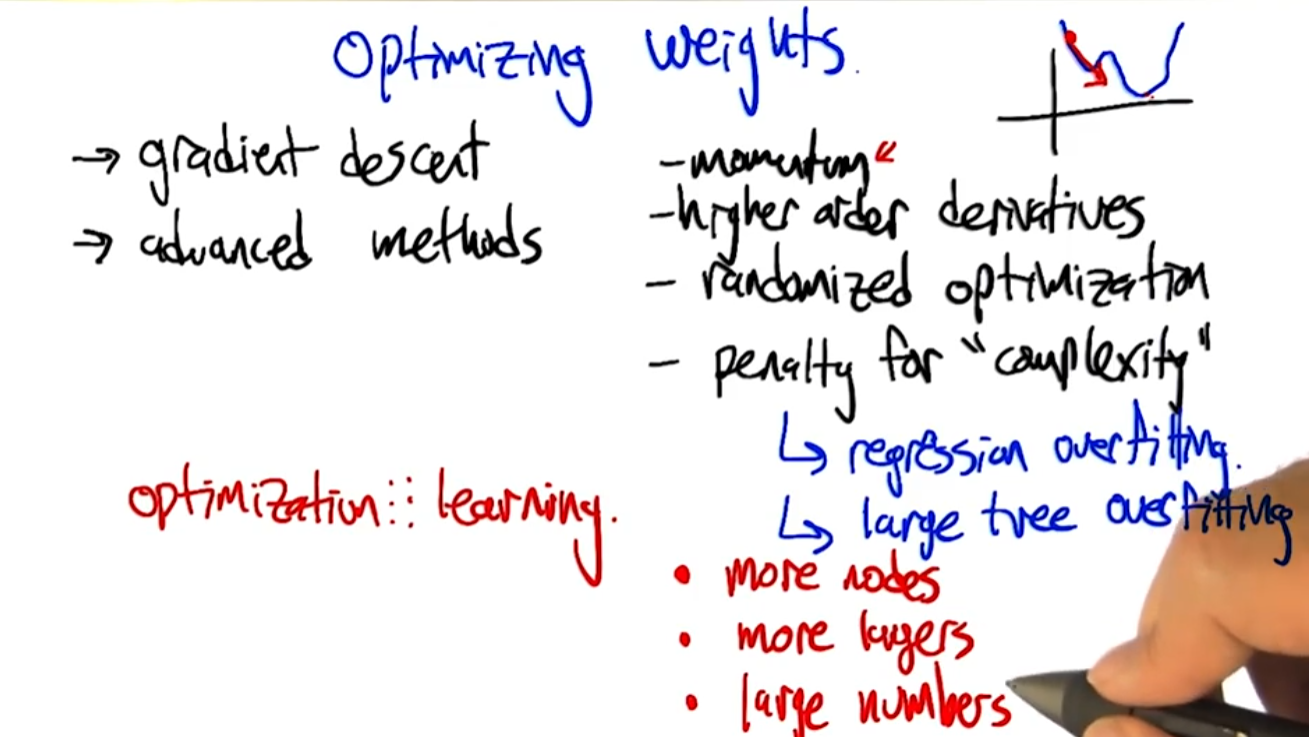 Optimizing weights.
→ gradient descent
→ advanced methods
- momentum
- higher order derivatives
- randomized optimization
- penalty for "complexity"
↳ regression overfitting.
↳ large tree overfitting
optimization :::: learning.
• more nodes
• more layers
• large numbers